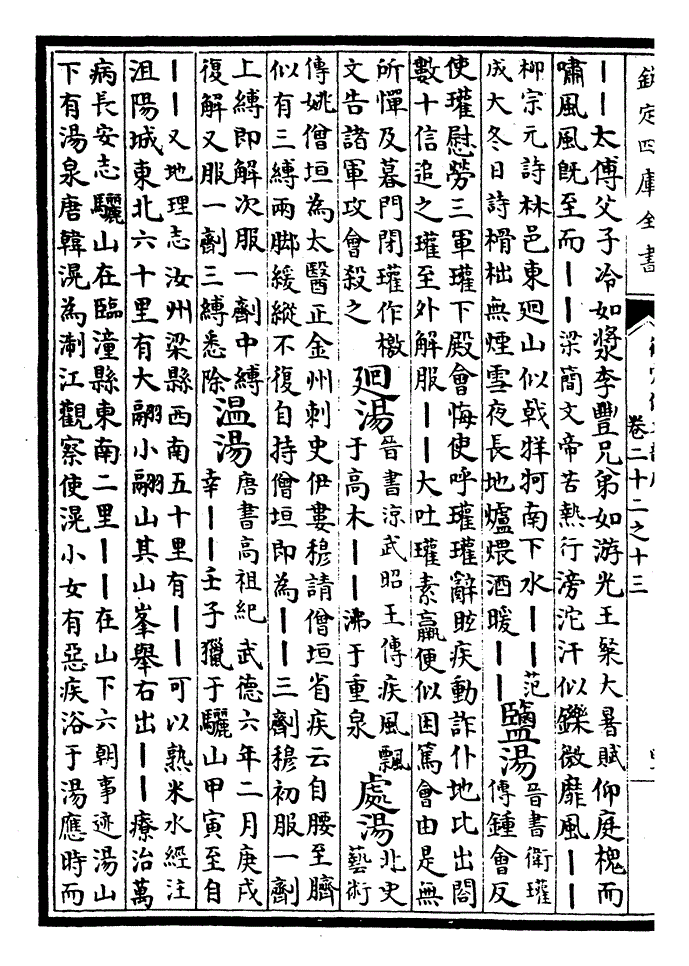 欽定四庫全書
卷二十二之十三
——太傅父子冷如漿李豐兄弟如游光王粲大暑賦仰庭槐而
嘯風風既至而——梁簡文帝苦熱行滂沱汗似鑠微靡風——
柳宗元詩林邑東廻山似戟牂牁南下水——范
成大冬日詩榾柮無煙雪夜長地爐煨酒暖——
鹽湯
晉書衛瓘
傳鍾會反
使瓘慰勞三軍瓘下殿會悔使呼瓘瓘辭眩疾動詐仆地比出閤
數十信追之瓘至外解服——大吐瓘素羸便似困篤會由是無
所憚及暮門閉瓘作檄
文告諸軍攻會殺之
廻湯
晉書涼武昭王傳疾風飄
于高木——沸于重泉
處湯
北史
藝術
傳姚僧垣為太醫正金州刺史伊婁穆請僧垣省疾云自腰至臍
似有三縛兩脚緩縱不復自持僧垣即為——三劑穆初服一劑
上縛即解次服一劑中縛
復解又服一劑三縛悉除
温湯
唐書高祖紀武德六年二月庚戌
幸——壬子獵于驪山甲寅至自
——又地理志汝州梁縣西南五十里有——可以熟米水經注
沮陽城東北六十里有大翮小翮山其山峯舉右出——療治萬
病長安志驪山在臨潼縣東南二里——在山下六朝事迹湯山
下有湯泉唐韓滉為淛江觀察使滉小女有惡疾浴于湯應時而